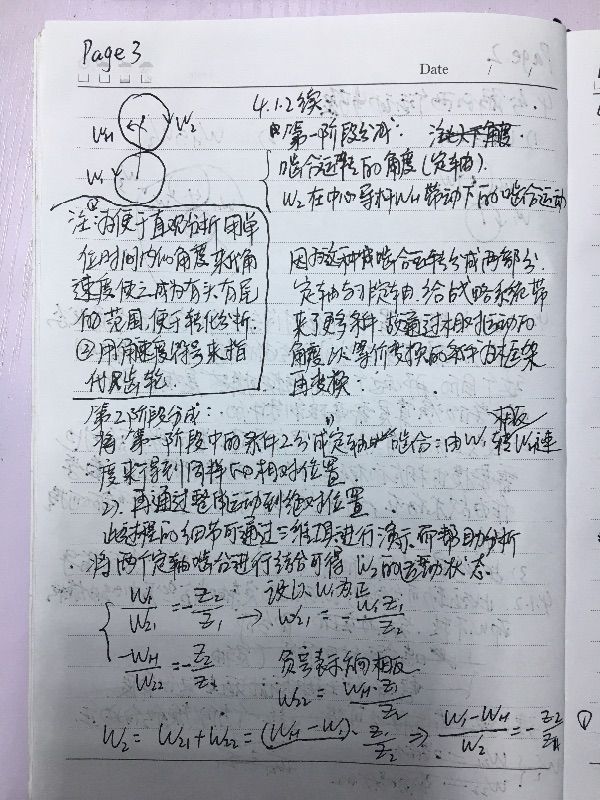 Page 3
Date / /
4.1.2续:
第一阶段分成:
啮合运转的角度(定轴).
W2在中心导杆WH带动下的啮合运动
WH W2
W1
注:①为便于直观分析用单
位时间内的角度来代角
速度使之成为有头有尾
的范围,便于转化分析.
②用角速度符号来指
代只齿轮
因为这种啮合运转分成两部分.
定轴与非定轴.给战略系统带
来了更多条件.故通过相对运动的
角度以等价变换的条件为框架
再变换:
第二阶段分成:
将:第一阶段中的条件2分成定轴啮合:由W1 相反转WH速
度来得到同样的相对位置
2).再通过整体运动到绝对位置
此过程的细节可通过三维工具进行演示.而帮助分析
将两个定轴啮合进行结合可得 W2的运动状态.
设以W1为正
W1/W21 = -Z2/Z1 → W21 = -W1Z1/Z2
-WH/W22 = -Z2/Z1
负号表示方向相反
W22 = WH·Z1/Z2
W2 = W21+W22 = (WH-W1)·Z1/Z2 ⇒ (W1-WH)/W2 = -Z2/Z1 ①